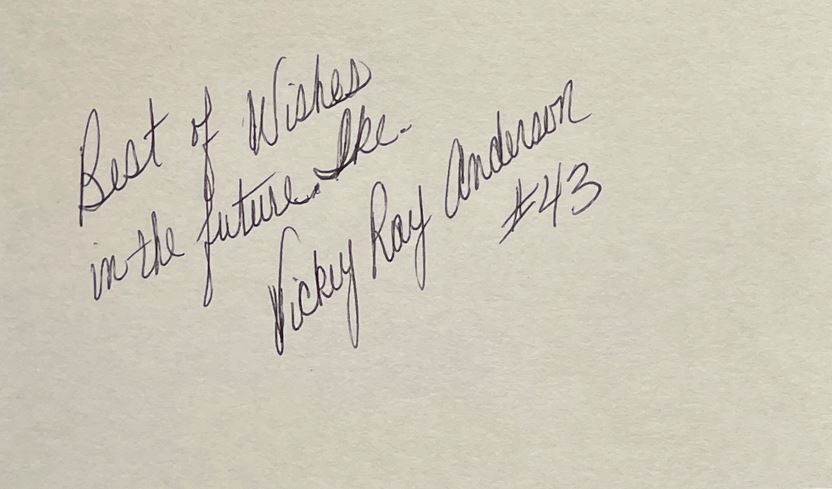 Best of Wishes
in the future Ike.
Vickey Ray Anderson
#43